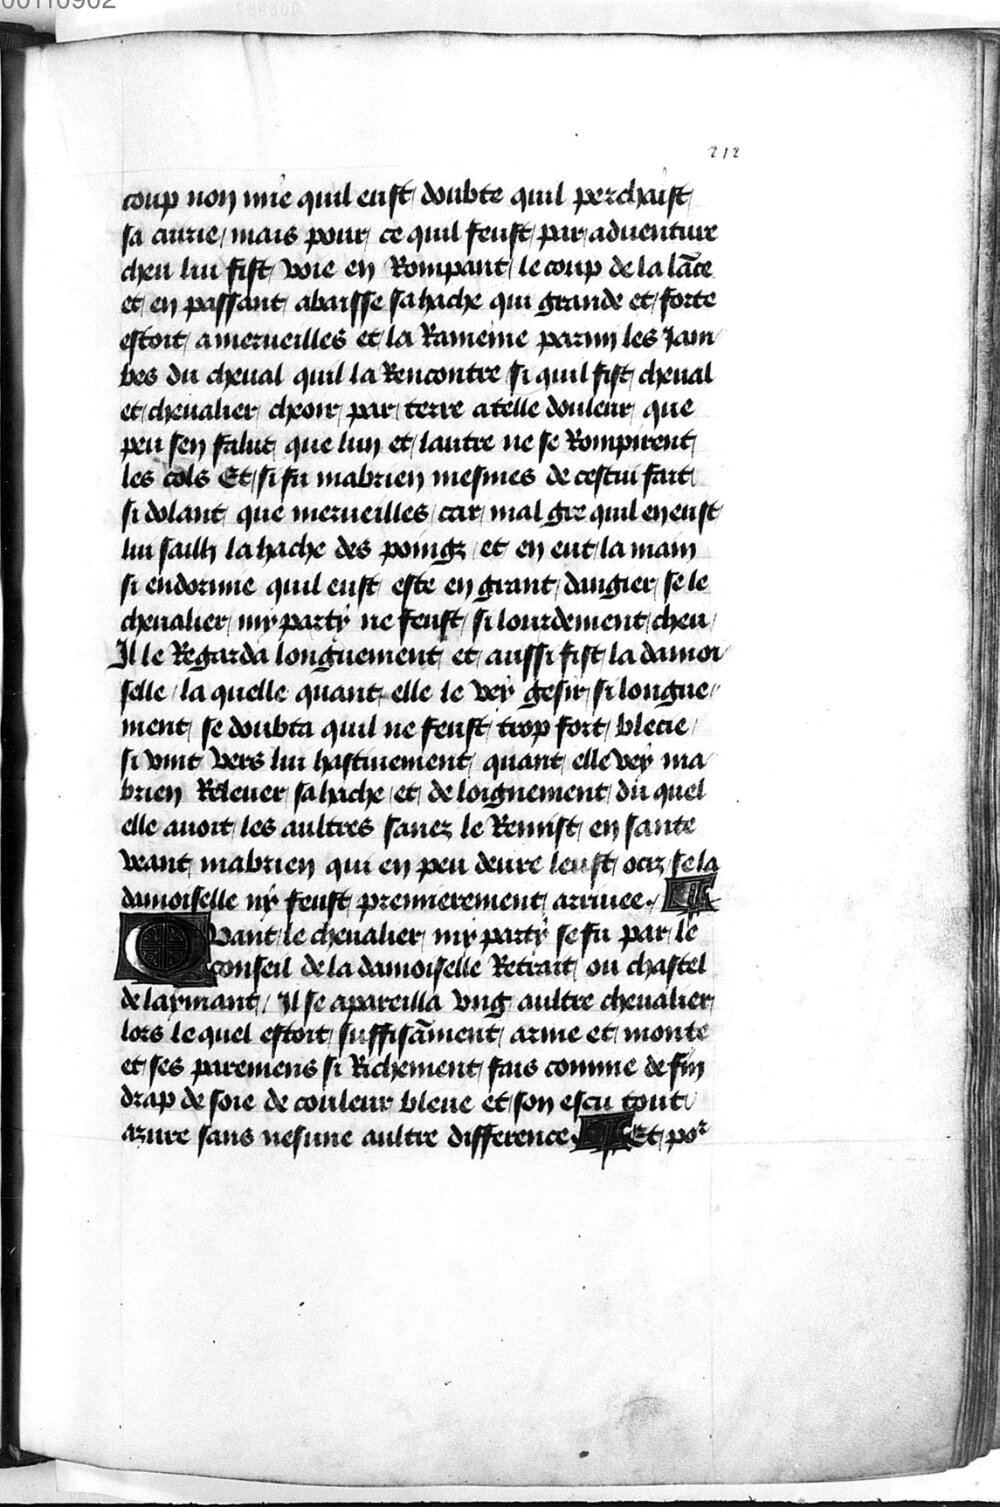 00110902
212
coup non mie quil eust doubte quil perchaist
sa cuirie / mais pour ce quil feust par aduenture
cheu lui fist voie en Rompant le coup de la lāce
et en passant abaisse sa hache qui grande et forte
estoit a merueilles et la Rameine parmi les Jam
bes du cheual quil la Rencontre si quil fist cheual
et cheualier cheoir par terre a telle douleur que
peu sen falut que lun et lautre ne se Rompirent
les cols Et si fu mabrien mesmes de cestui fait
si dolant que merueilles car mal gre quil en eust
lui sailly la hache des poingz et en eut la main
si endormie quil eust este en grant dangier se le
cheualier my party ne feust si lourdement cheu /
Il le Regarda longuement et aussi fist la damoi
selle / la quelle quant elle le vey gesir si longue
ment se doubta quil ne feust trop fort blecie /
si vint vers lui hastiuement quant elle vey ma
brien Releuer sa hache et de loignement du quel
elle auoit les aultres sanez le Remist en sante
veant mabrien qui en peu deure leust ociz se la
damoiselle ny feust premierement arriuee .
Quant le cheualier my party se fu par le
conseil de la damoiselle Retrait ou chastel
de laymant / Il se apareilla vng aultre cheualier
lors le quel estoit suffisāment arme et monte
et ses paremens si Richement fais comme de fin
drap de soie de couleur bleue et son escu tout
azure sans nesune aultre difference . Et poʳ